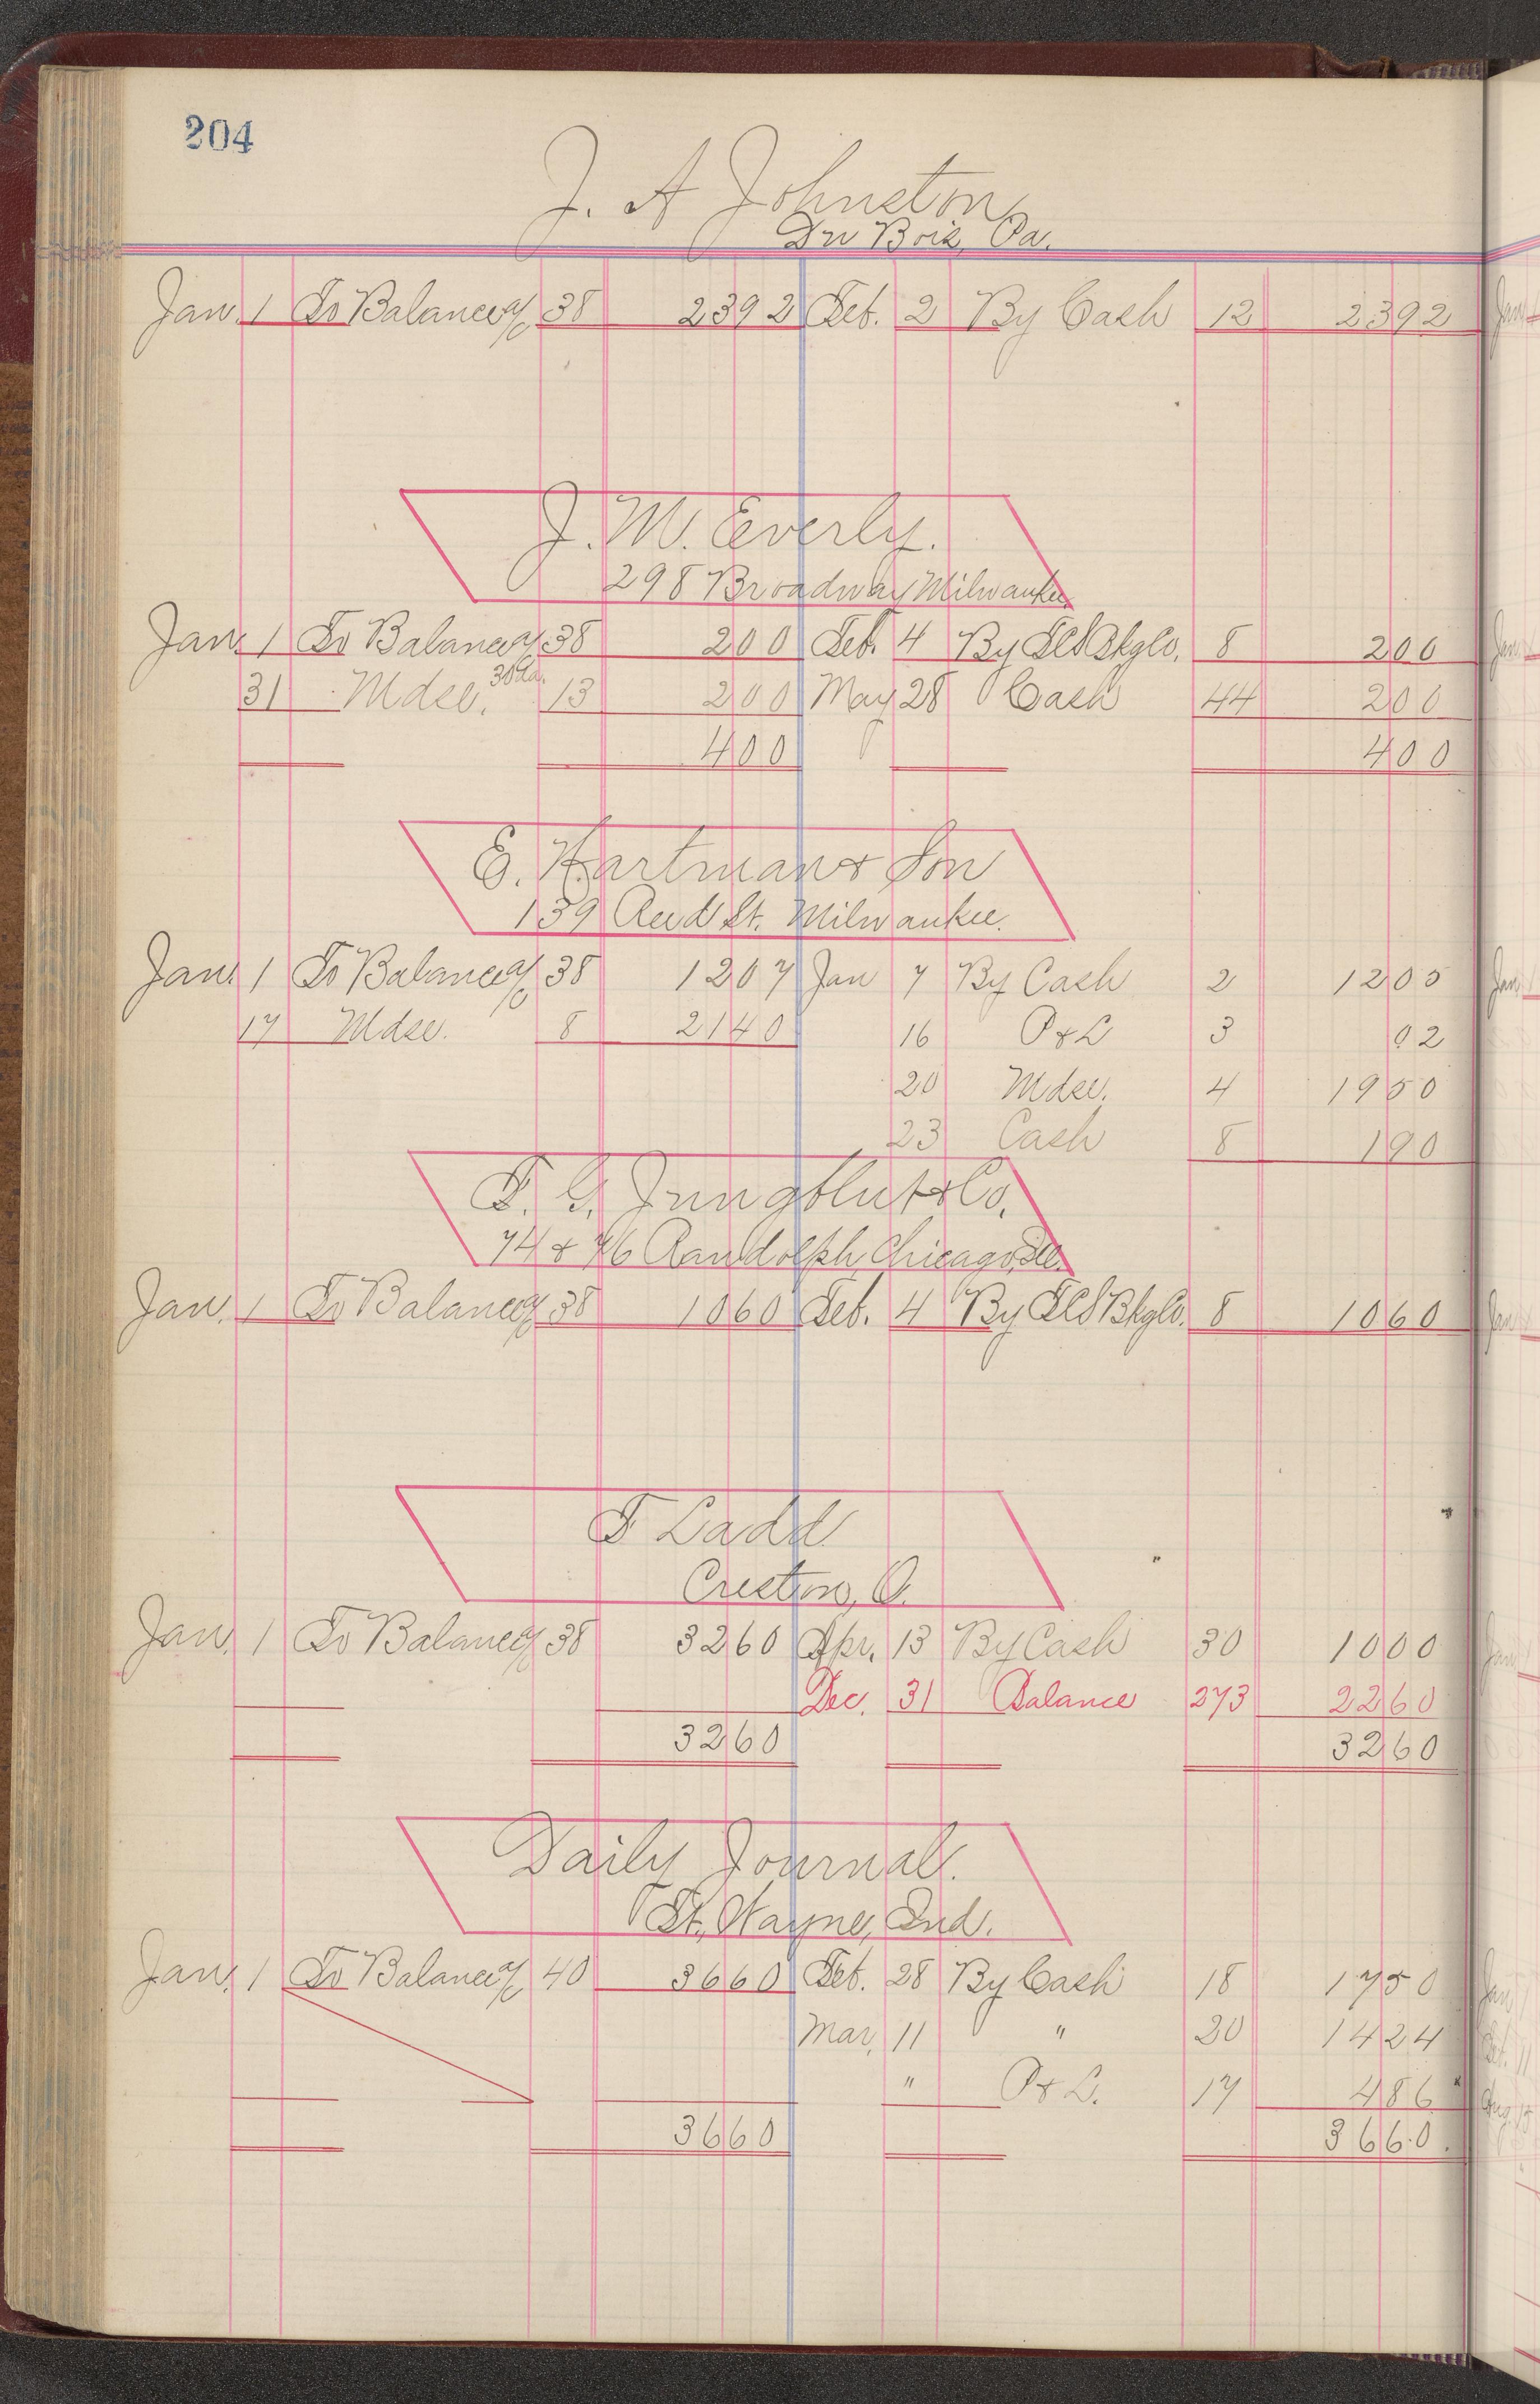 204
J. A Johnston
Du Bois, Pa.
Jan. 1 To Balance a/c 38 2392 Feb. 2 By Cash 12 2392
J. M. Everly.
298 Broadway Milwaukee
Jan. 1 To Balance a/c 38 200 Feb. 4 By FCS Bkg Co. 8 200
31 Mdse. 30 da. 13 200 May 28 Cash 44 200
400 400
E. Hartman & Son
139 Reed St. Milwaukee.
Jan. 1 To Balance a/c 38 1207 Jan 7 By Cash 2 1205
17 Mdse. 8 2140 16 P & L 3 02
20 Mdse. 4 1950
23 Cash 8 190
F. G. Jungblut & Co.
74 & 76 Randolph, Chicago, Ill.
Jan. 1 To Balance a/c 38 1060 Feb. 4 By FCS Bkg Co. 8 1060
F Ladd
Creston, O.
Jan. 1 To Balance a/c 38 3260 Apr. 13 By Cash 30 1000
Dec. 31 Balance 273 2260
3260 3260
Daily Journal.
Ft. Wayne, Ind.
Jan. 1 To Balance a/c 40 3660 Feb. 28 By Cash 18 1750
Mar. 11 " 20 1424
" P & L. 17 486
3660 3660.